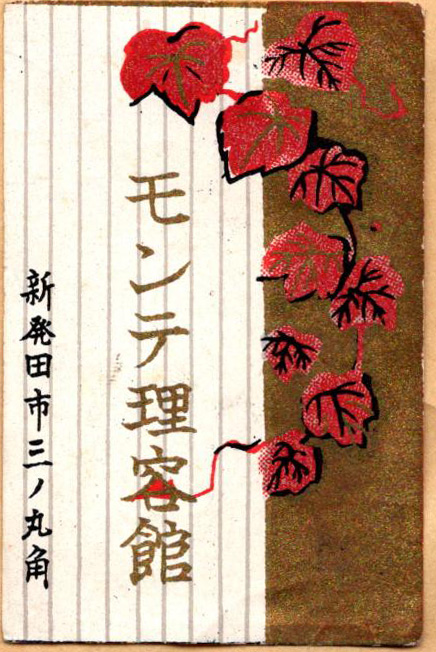 モンテ理容館
新発田市三ノ丸角